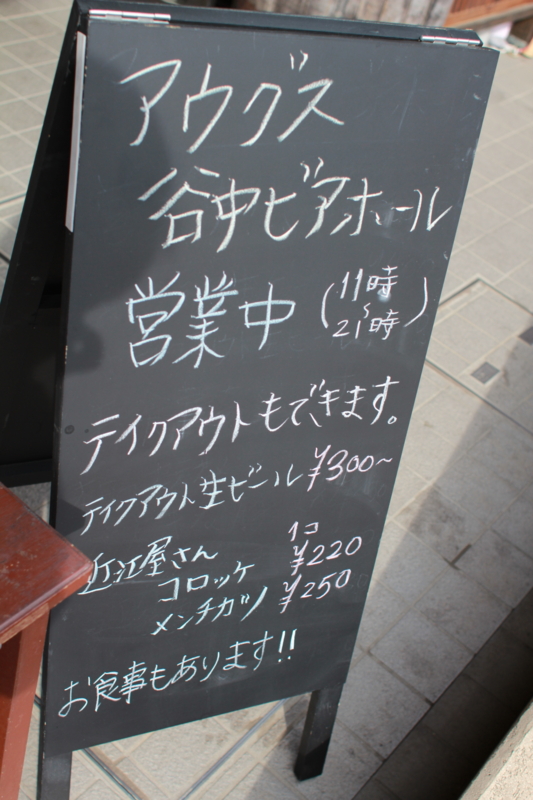 アウグス
谷中ビアホール
営業中 (11時
~
21時)
テイクアウトもできます。
テイクアウト生ビール ¥300~
1コ
近江屋さん
コロッケ ¥220
メンチカツ ¥250
お食事もあります!!